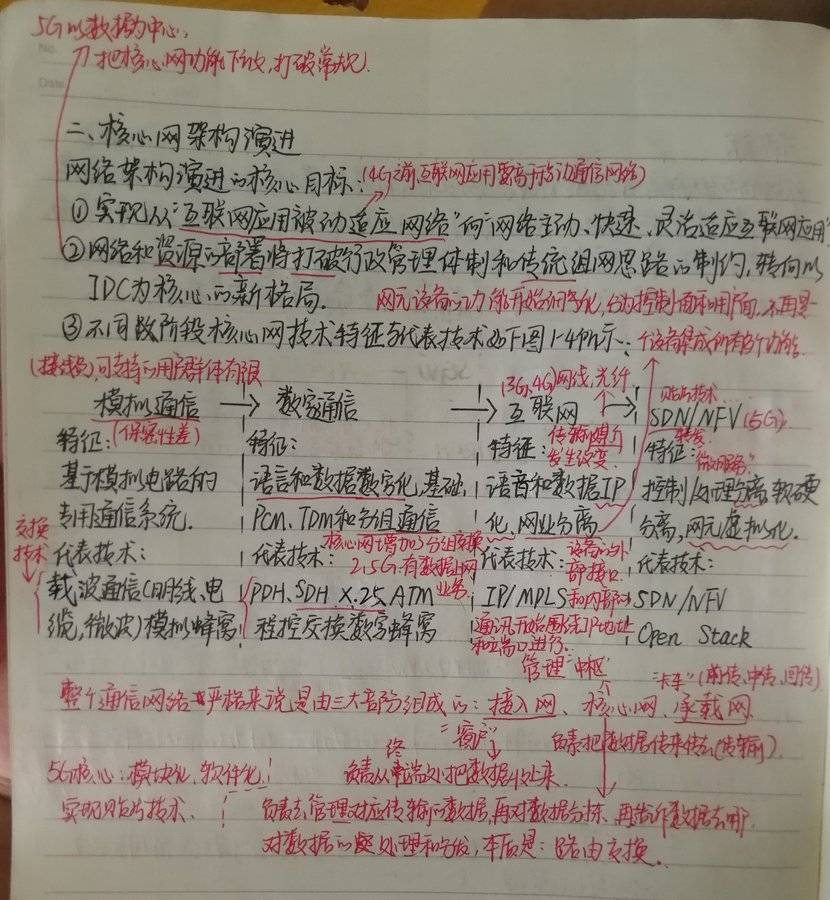 5G以数据为中心,
把核心网功能下放,打破常规.
No.
Date
二、核心网架构演进
网络架构演进的核心目标:(4G之前互联网应用要高于移动通信网络)
①实现从"互联网应用被动适应网络"向"网络主动、快速、灵活适应互联网应用"
②网络和资源的部署将打破行政管理体制和传统组网思路的制约,转向以
IDC为核心的新格局.
网元设备的功能开始简化,分为控制面和用户面,不再是一
③不同阶段核心网技术特征与代表技术如下图1-4所示:个设备集成所有的功能.
(接线员),可支持的用户群体有限
模拟通信 → 数字通信 → 互联网 → SDN/NFV(5G)
(3G,4G)网线,光纤
贴片技术
特征:(保密性差)
基于模拟电路的
专用通信系统.
交换技术
代表技术:
载波通信(明线、电
缆,微波)模拟蜂窝
特征:
语言和数据数字化,基础,
PCM、TDM和分组通信
代表技术:
核心网增加了分组交换
2.5G有数据上网业务
PDH、SDH X.25 ATM
程控交换数字蜂窝
特征:传输媒介发生改变.
语音和数据IP
化、网业分离
代表技术:设备的外部接口
IP/MPLS和内部的
通讯开始围绕IP地址
和端口进行.
特征:
"微服务"
控制/处理分离,软硬
分离,网元虚拟化.
代表技术:
SDN/NFV
Open Stack
管理"中枢"
"卡车"(前传、中传、回传)
整个通信网络严格来说是由三大部分组成的:接入网、核心网、承载网.
="窗户"
负责把数据传来传去(传输).
负责从终端处把数据收上来.
5G核心:模块化、软件化,
实现贴片技术.
负责去管理对应传输的数据,再对数据分析,再告诉数据去哪.
对数据的处理和分发,本质是:路由交换.